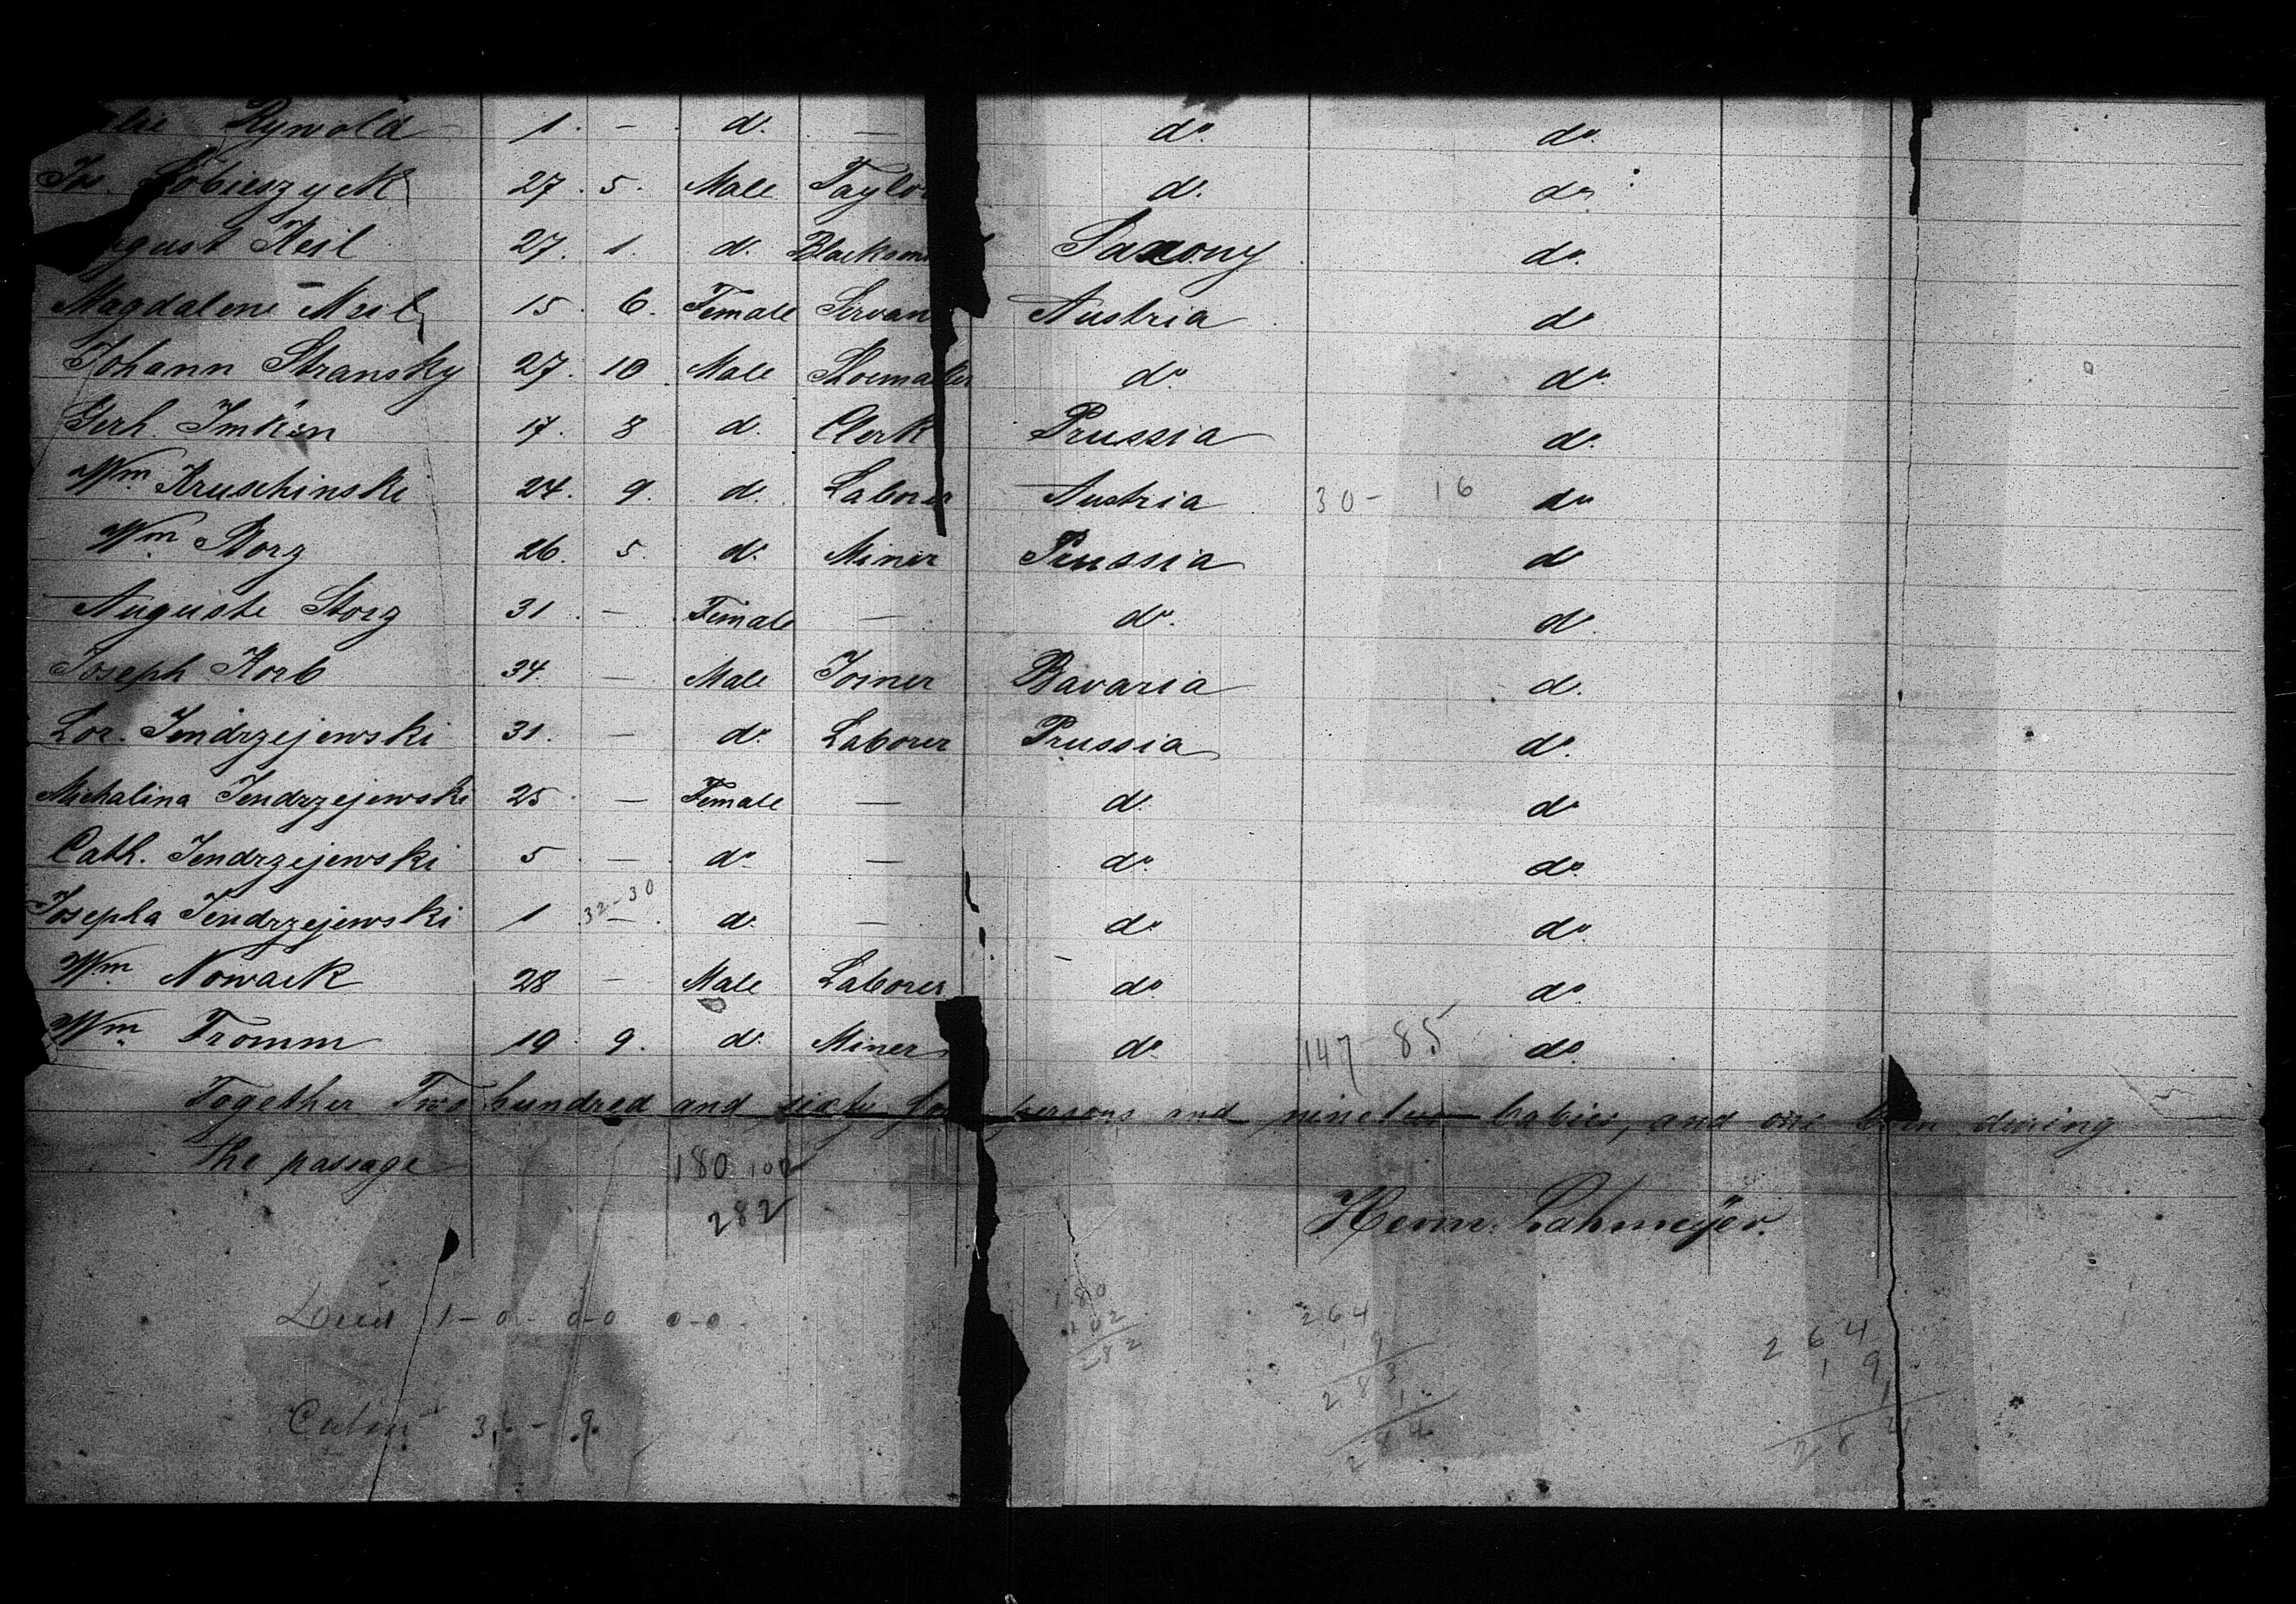 Rywold 1. - d. - do. do.
Jos. Sobieszyck 27. 5. Male Taylor d. do
August Keil 27. 1. d. Blacksm Saxony do.
Magdalene 15. 6. Female Servan Austria do
Johann Stransky 27. 10 Male Shoemaker do. do.
Gerh. Imken 17. 8 d. Clerk Prussia d.
Wm. Kruschinski 24. 9. d. Laborer Austria 30 - 16 do
Wm. Storz 26. 5. do. Miner Prussia d
Auguste Storz 31. - Female - do. d.
Joseph Korb 34. - Male Joiner Bavaria d.
Lor. Jendrzejewski 31. - do. Laborer Prussia do.
Michalina Jendrzejewski 25. - Female - d. do
Cath. Jendrzejewski 5. - do - do. do.
32-30
Josepha Jendrzejewski 1 - d. - do. do.
Wm. Nowack 28 - Male Laborer do. do.
Wm. Fromm 19. 9. d. Miner do. 147 - 85 do.
Together Two hundred and sixty persons and nineteen babies, and one born during
the passage
180 102
282
Herm. Lahmeyer.
Died 1 - 0 - 0-0 0-0
180
102
282
264
19
283
1
284
264
19
1
284